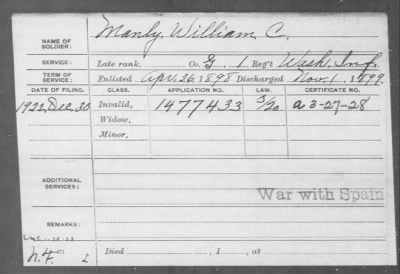 NAME OF SOLDIER: Manly, William C.
SERVICE: Late rank, Co. G, 1 Reg't Wash. Inf.
TERM OF SERVICE: Enlisted Apr. 26, 1898 Discharged Nov. 1, 1899.
DATE OF FILING. CLASS. APPLICATION NO. LAW. CERTIFICATE NO.
1922, Dec. 30 Invalid, 1477433 a 3-27-28
Widow,
Minor,
ADDITIONAL SERVICES:
War with Spain
REMARKS:
Died , 1 , at